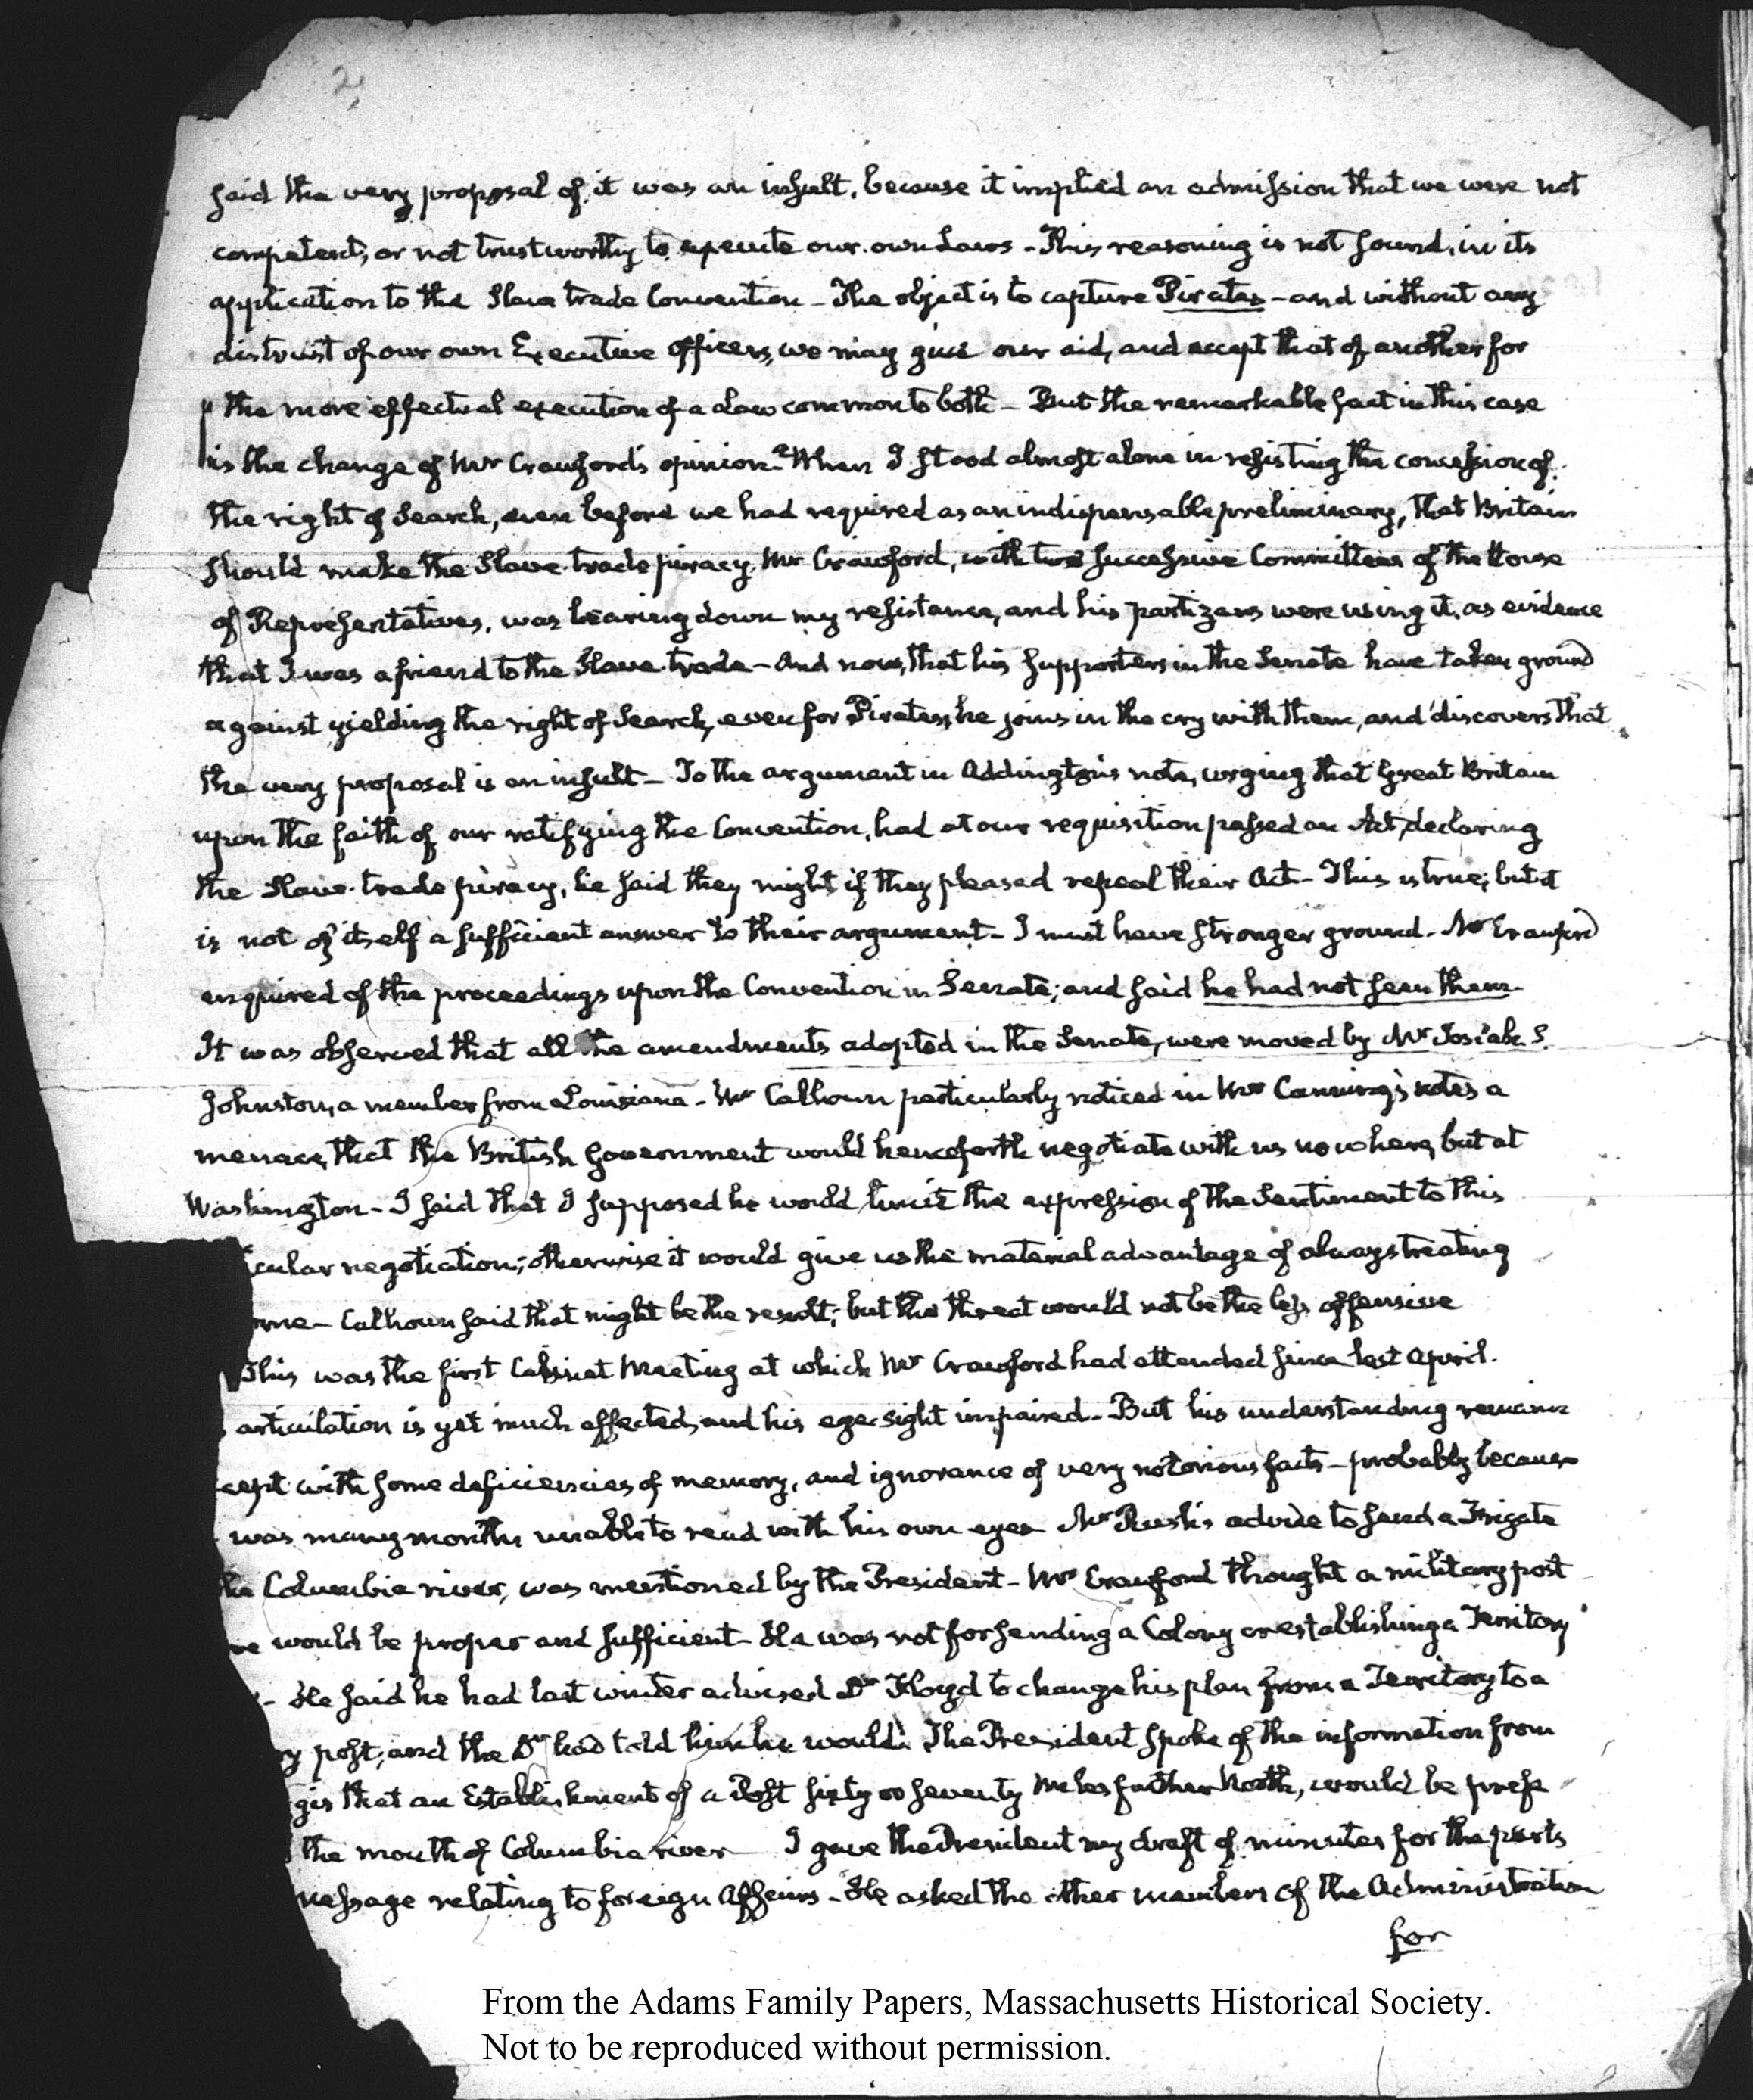 2
said the very proposal of it was an insult, because it implied an admission that we were not
competent, or not trustworthy to execute our own Laws - This reasoning is not sound, in its
application to the Slave trade Convention - The object is to capture Pirates - and without any
distrust of our own Executive Officers, we may give our aid, and accept that of another for
the more effectual execution of a Law common to both - But the remarkable fact in this case
is the change of Mr Crawford's opinion - When I stood almost alone in resisting the concession of
the right of Search, even before we had required as an indispensable preliminary, that Britain
should make the Slave-trade piracy, Mr Crawford, with two successive Committees of the House
of Representatives, was bearing down my resistance, and his partizans were using it, as evidence
that I was a friend to the Slave-trade - And now, that his supporters in the Senate have taken ground
against yielding the right of Search, even for Pirates, he joins in the cry with them, and discovers that
the very proposal is an insult - To the argument in Addington's note, urging that Great Britain
upon the faith of our ratifying the Convention, had at our requisition passed an Act, declaring
the Slave-trade piracy, he said they might if they pleased repeal their Act - This is true; but it
is not of itself a sufficient answer to their argument - I must have stronger ground. Mr Crawford
enquired of the proceedings upon the Convention in Senate; and said he had not seen them.
It was observed that all the amendments adopted in the Senate, were moved by Mr Josiah S.
Johnston, a member from Louisiana - Mr Calhoun particularly noticed in Mr Canning's notes a
menace, that the British Government would henceforth negotiate with us no where, but at
Washington - I said that I supposed he would limit the expression of the Sentiment to this
icular negotiation; otherwise it would give us the material advantage of always treating
ome - Calhoun said that might be the result; but the threat would not be the less offensive
This was the first Cabinet Meeting at which Mr Crawford had attended since last April.
articulation is yet much affected, and his eye-sight impaired - But his understanding remains
cept with some deficiencies of memory, and ignorance of very notorious facts - probably because
was many months unable to read with his own eyes Mr Rush's advice to send a Frigate
the Columbia river, was mentioned by the President - Mr Crawford thought a military post
re would be proper and sufficient - He was not for sending a Colony or establishing a Territory
- He said he had last winter advised Dr Floyd to change his plan from a Territory to a
ry post; and the Dr had told him he would. The President spoke of the information from
gis that an Establishment of a Post sixty or seventy Miles further North, would be prefe
the mouth of Columbia river I gave the President my draft of minutes for the parts
message relating to foreign Affairs - He asked the other members of the Administration
for
From the Adams Family Papers, Massachusetts Historical Society.
Not to be reproduced without permission.